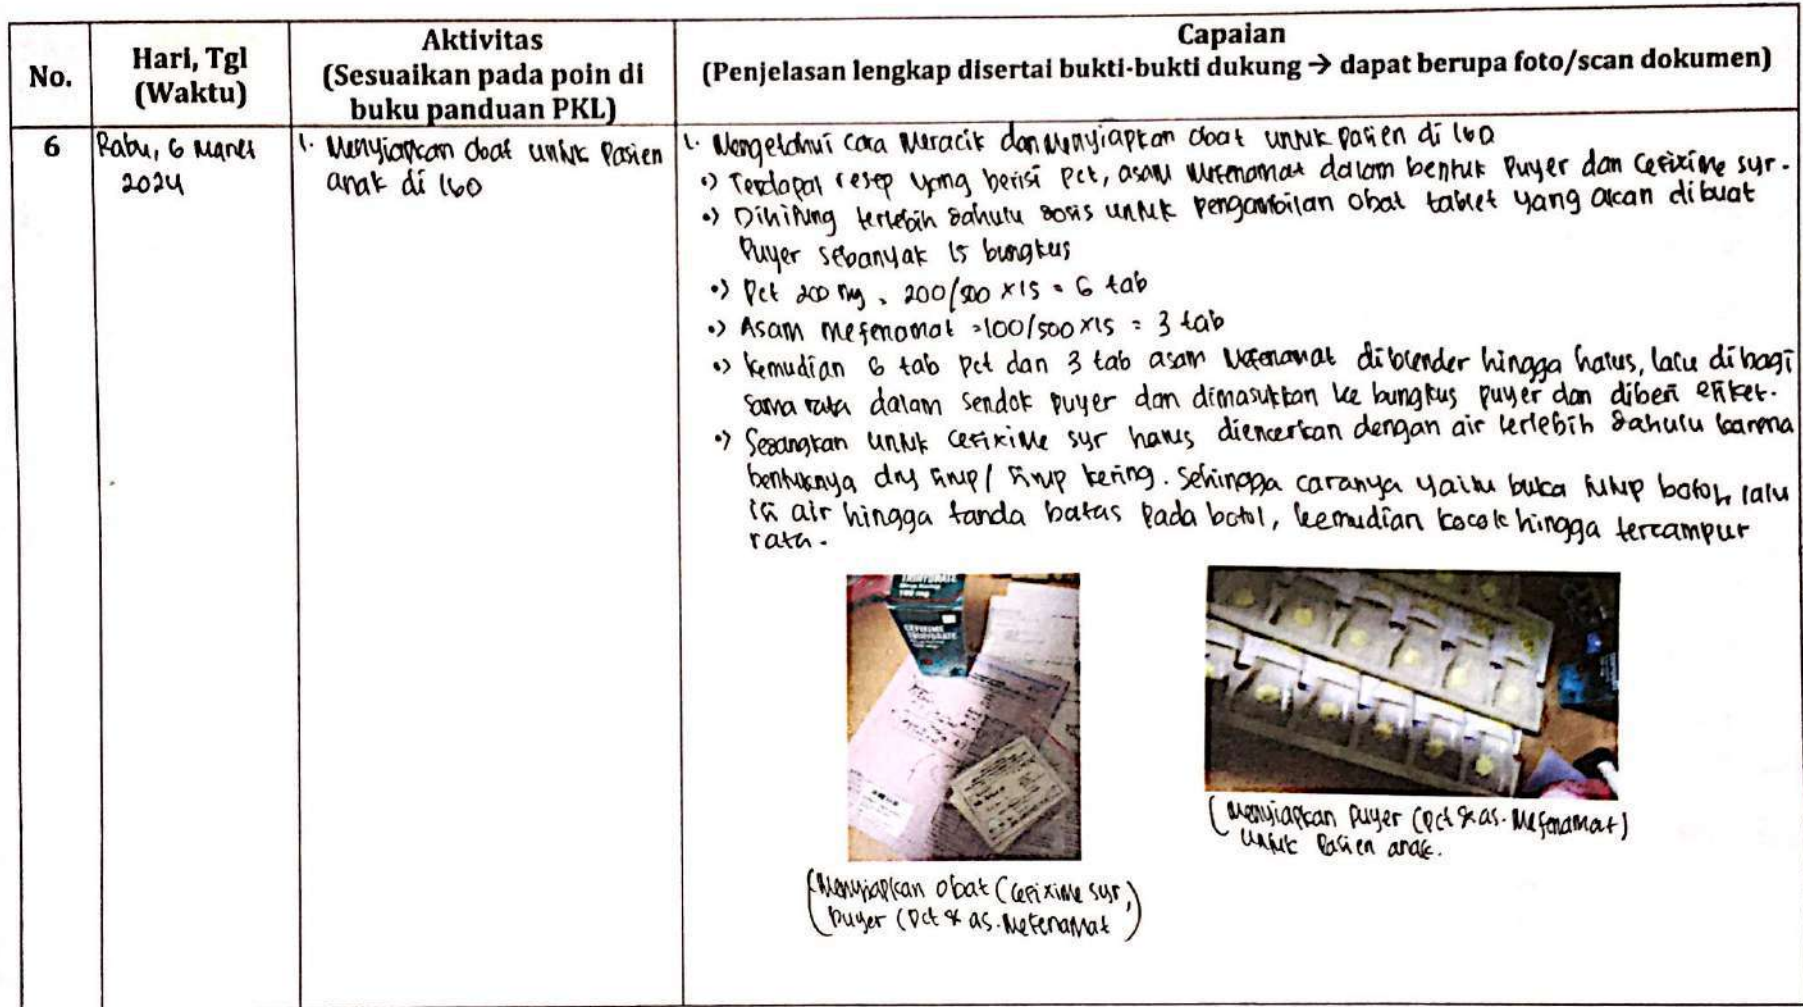 No.
Hari, Tgl
(Waktu)
Aktivitas
(Sesuaikan pada poin di
buku panduan PKL)
Capaian
(Penjelasan lengkap disertai bukti-bukti dukung → dapat berupa foto/scan dokumen)
6
Rabu, 6 Maret
2024
1. Menyiapkan obat untuk Pasien
anak di IGD
1. Mengetahui cara Meracik dan Menyiapkan obat untuk pasien di IGD
•) Terdapat resep yang berisi Pct, asam Mefenamat dalam bentuk Puyer dan Cefixime syr.
•) Dihitung terlebih dahulu dosis untuk pengambilan obat tablet yang akan dibuat
Puyer sebanyak 15 bungkus
•) Pct 200 mg = 200/500 x 15 = 6 tab
•) Asam Mefenamat = 100/500 x 15 = 3 tab
•) Kemudian 6 tab Pct dan 3 tab asam Mefenamat diblender hingga halus, lalu dibagi
sama rata dalam sendok puyer dan dimasukkan ke bungkus puyer dan diberi etiket.
•) Sedangkan untuk Cefixime syr harus diencerkan dengan air terlebih dahulu karena
bentuknya dry sirup/ sirup kering. Sehingga caranya yaitu buka tutup botol, lalu
isi air hingga tanda batas pada botol, kemudian kocok hingga tercampur
rata.
TRIHYDRATE
100 mg
CEFIXIME
TRIHYDRATE
(Menyiapkan obat (Cefixime syr,
puyer (Pct & as. Mefenamat)
(Menyiapkan Puyer (Pct & as. Mefenamat)
untuk Pasien anak.